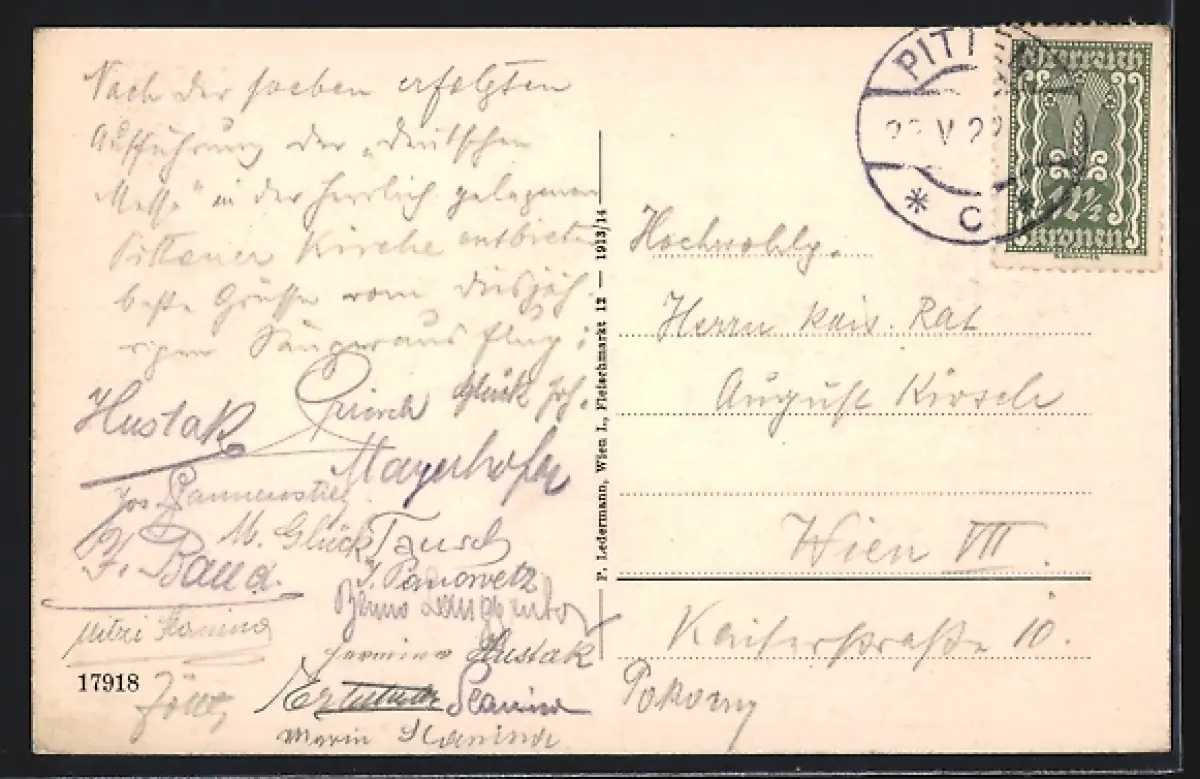 Nach der soeben erfolgten
Aufführung der „deutschen
Messe" in der herrlich gelegenen
Pittener Kirche entbieten
beste Grüsse vom diesjäh-
rigen Sängerausflug:
Hustak
Glück Joh.
Mayerhofer
Jos. Pannenstiel
M. Glück Tausch
F. Bauer
J. Panowetz
Benno
Mitzi Stanina
Hermine Hustak
Stanina
Marie Stanina
17918
P. Ledermann, Wien I., Fleischmarkt 12 — 1913/14
PITT
V 22
* C *
Österreich
12½
Kronen
Hochwohlg.
Herrn kais. Rat
August Kirsch
Wien VIII.
Kaiserstraße 10.
Pokorny